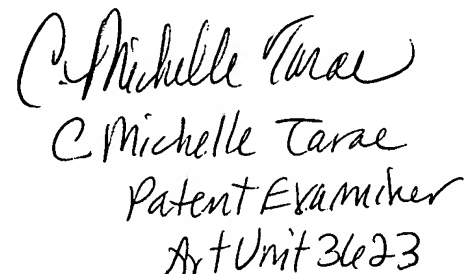 C. Michelle Tarae
C Michelle Tarae
Patent Examiner
Art Unit 3623